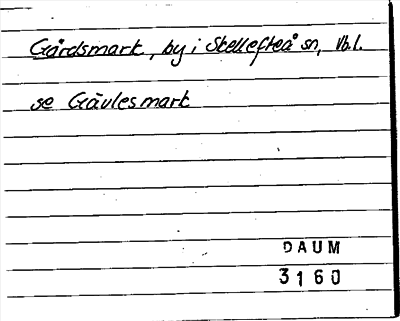 Gårdsmark, by i Skellefteå sn, Vb.l.
se Gävlesmark
DAUM
3160